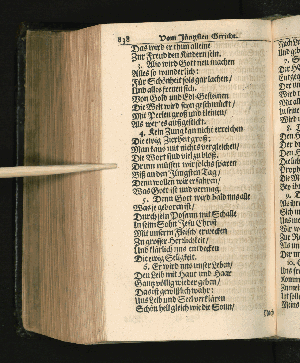 838 Vom Jüngsten Gericht.
Das wird er thun alleine
Zur Freud den Kindern sein.
3. Also wird Gott neu machen
Alles so wunderlich:
Für Schönheit solls gar lachen/
Und alles freuen sich.
Von Gold und Edelgesteinen
Die Welt wird seyn geschmückt/
Mit Perlen groß und kleinen/
Als wer es außgestickt.
4. Kein Zung kan nicht erreichen
Die ewig Zierheit groß:
Man kans mit nichts vergleichen/
Die Wort sind viel zu bloß.
Darum müssen wir solchs sparen
Biß an den Jüngsten Tag/
Denn wollen wir erfahren/
Was Gott ist und vermag.
5. Denn Gott wird bald uns alle
Was je geboren ist/
Durch sein Posaun mit Schalle
In seim Sohn Jesu Christ
Mit unserm Fleisch erwecken
Zu grosser Herrlichkeit/
Und klärlich uns entdecken
Die ewig Seligkeit.
6. Er wird uns unser Leben/
Den Leib mit Haut und Haar
Gang völlig wieder geben/
Das ist gewißlich wahr:
Uns Leib und Seel verklären
Schön hell gleich wie die Sonn/